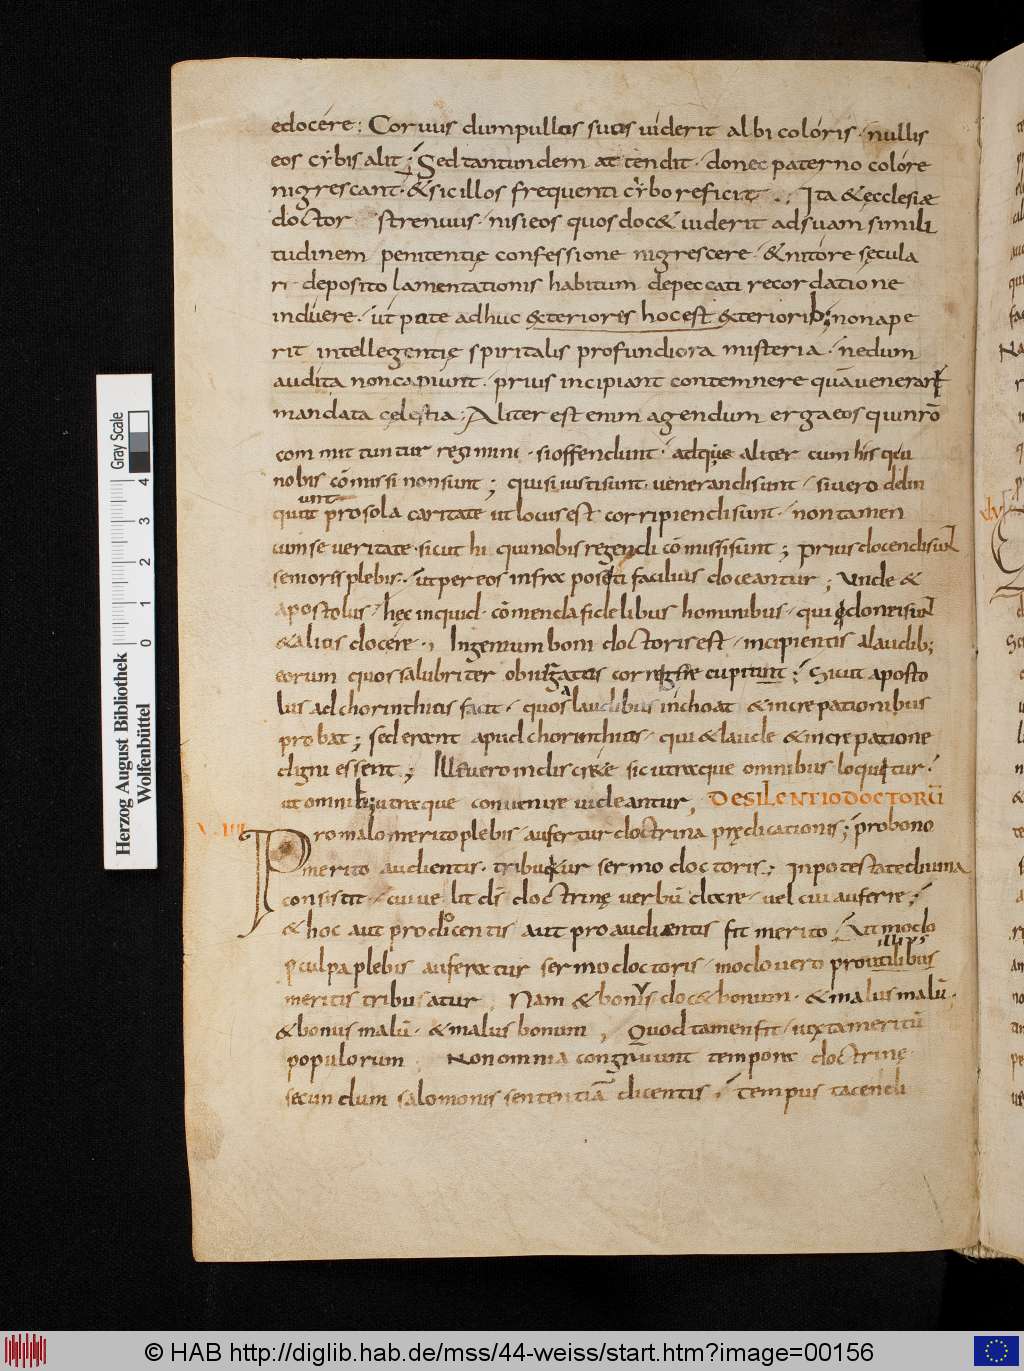 edocere; Coruus dum pullus suus uiderit albi coloris · nullis
eos cybis alit; Sed tantundem attendit · donec paterno colore
nigrescant · & sic illos frequenti cybo reficit . , Ita & ecclesiae
doctor strenuus · nisi eos quos doc& uiderit ad suam simili
tudinem penitentię confessione nigrescere · & nitore sęcula
ri deposito lamentationis habitum de peccati recordatione
induere · ut pute adhuc &terioris hoc est &teriorib; non ape
rit intellegentię spiritalis profundiora misteria · nedum
audita non capiunt · prius incipiant contemnere quā uenerari
mandata cęlestia; Aliter est enim agendum erga eos qui nr̄o
committuntur regimini · si offendunt · adque aliter cum his qui
nobis cōmissi non sunt; qui si iusti sunt · uenerandi sunt · si uero delin
unt
quunt pro sola caritate ut locus est corripiendi sunt · non tamen
cum seueritate · sicut hi qui nobis regendi cōmissi sunt; prius docendi sunt
seniores plebis · ut per eos infra positi facilius doceantur; Unde &
apostolus · hęc inquid · cōmenda fidelibus hominibus · qui idonei sunt
& alius docere . , Ingenium boni doctoris est · incipientis a laudib;
eorum quos salubriter obiurgatus corregere cupiunt; Sicut aposto
lus ad chorinthius facit · quos laudibus inchoat & increpationibus
probat; sed erant apud chorinthius · qui & laude & increpatione
digni essent; Ille uero indiscrete sic utraque omnibus loquitur ·
ut omnib; utraque conuenire uideantur, DE SILENTIO DOCTORŪ
Pro malo merito plebis · aufertur doctrina prędicationis; pro bono
merito audientis · tribuitur sermo doctoris; in potestate diuina
consistit · cui uelit dš doctrinę uerbū dare · uel cui auferre;
& hoc aut pro dicentis aut pro audientis fit merito · Ait modo
p culpa plebis auferatur sermo doctoris · modo uero pro utilibus
meritis tribuatur, Nam & bonus doc& bonum · & malus malū ·
& bonus malū · & malus bonum, Quod tamen fit · iuxta meritū
populorum Non omnia congruunt tempora doctrinę ·
secundum salomonis sententiā dicentis; tempus tacendi
Herzog August Bibliothek
Wolfenbüttel
0 1 2 3 4
Gray Scale
© HAB http://diglib.hab.de/mss/44-weiss/start.htm?image=00156